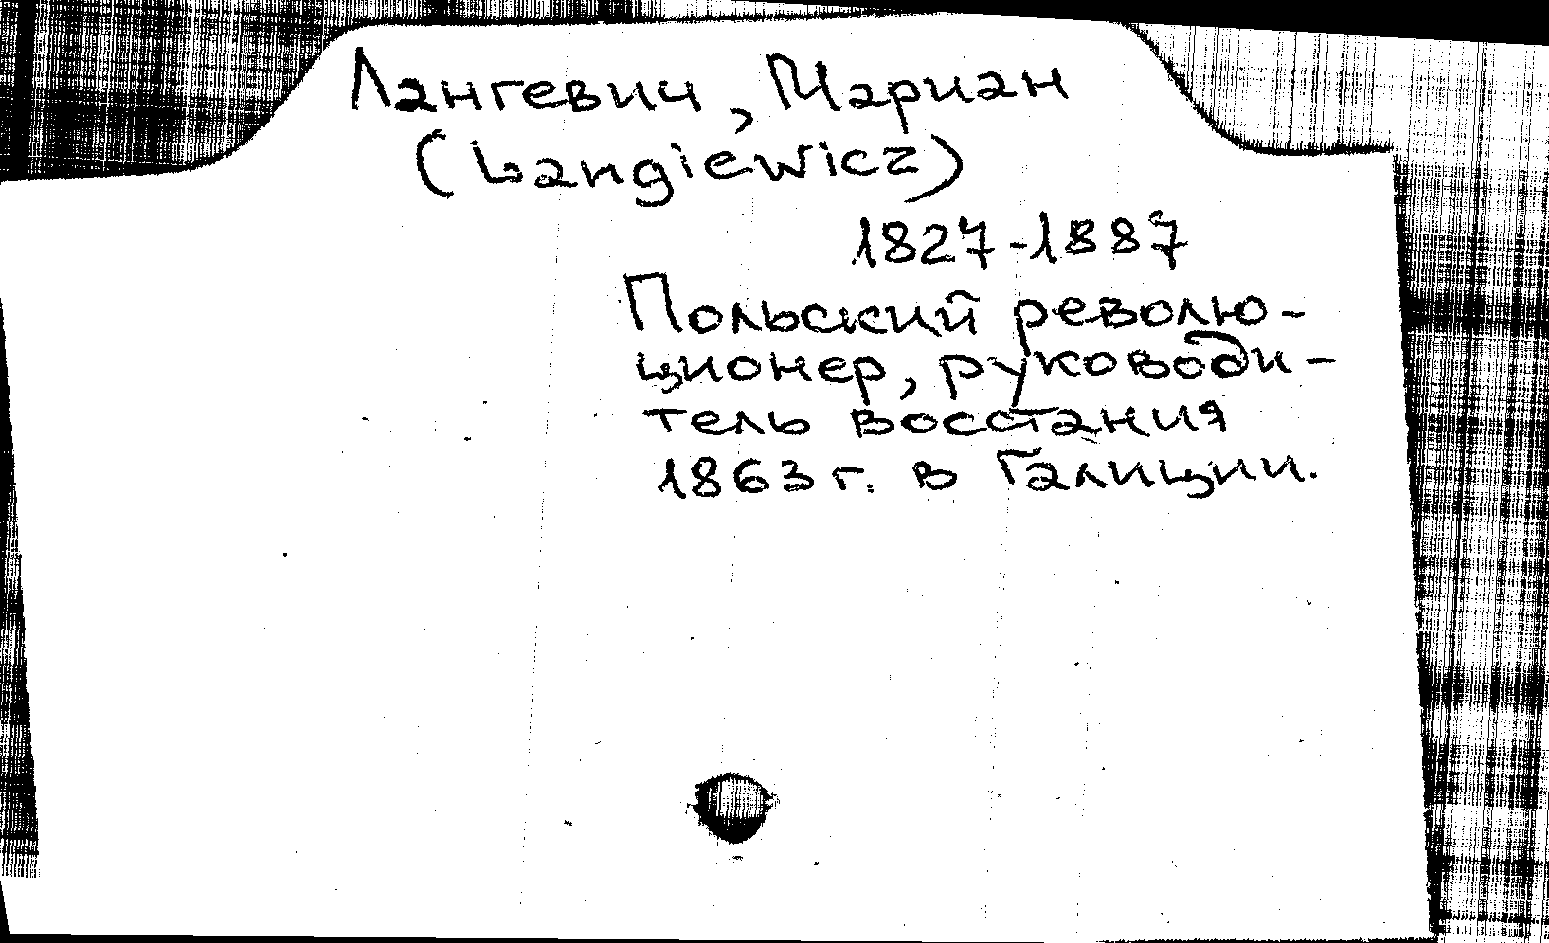 Лангевич, Мариан
(Langiewicz)
1827-1887
Польский револю-
ционер, руководи-
тель восстания
1863 г. в Галиции.